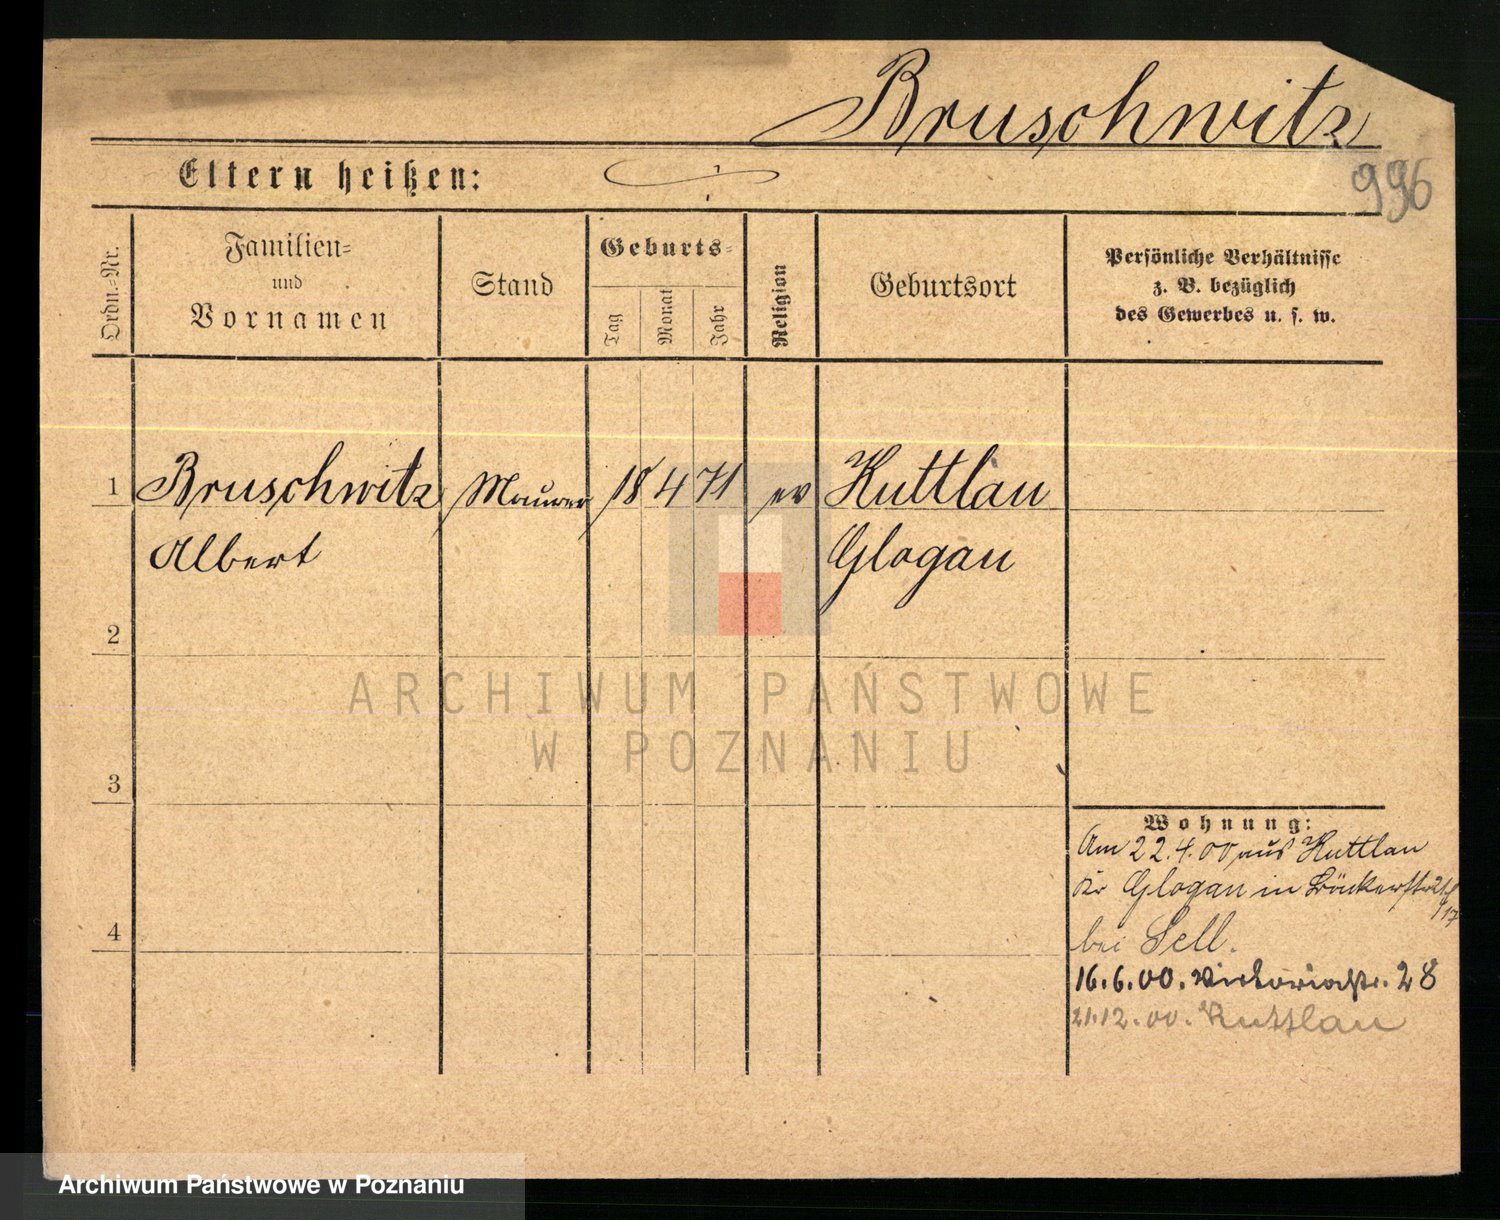 Bruschwitz
996
Eltern heißen:
Ordn.-Nr.
Familien-
und
Vornamen
Stand
Geburts-
Tag
Monat
Jahr
Religion
Geburtsort
Persönliche Verhältnisse
z. B. bezüglich
des Gewerbes u. s. w.
1 Bruschwitz Maurer 18 4 71 ev Kuttlau
Albert Glogau
2
3
4
Wohnung:
Am 22.4.00 aus Kuttlau
Kr Glogau in Bäckerstr
bei Sell.
16.6.00. Victoriastr. 28
21.12.00. Kuttlau
ARCHIWUM PAŃSTWOWE
W POZNANIU
Archiwum Państwowe w Poznaniu